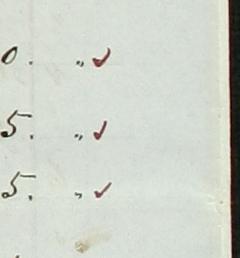 0. „ ✓
5. „ ✓
5. „ ✓